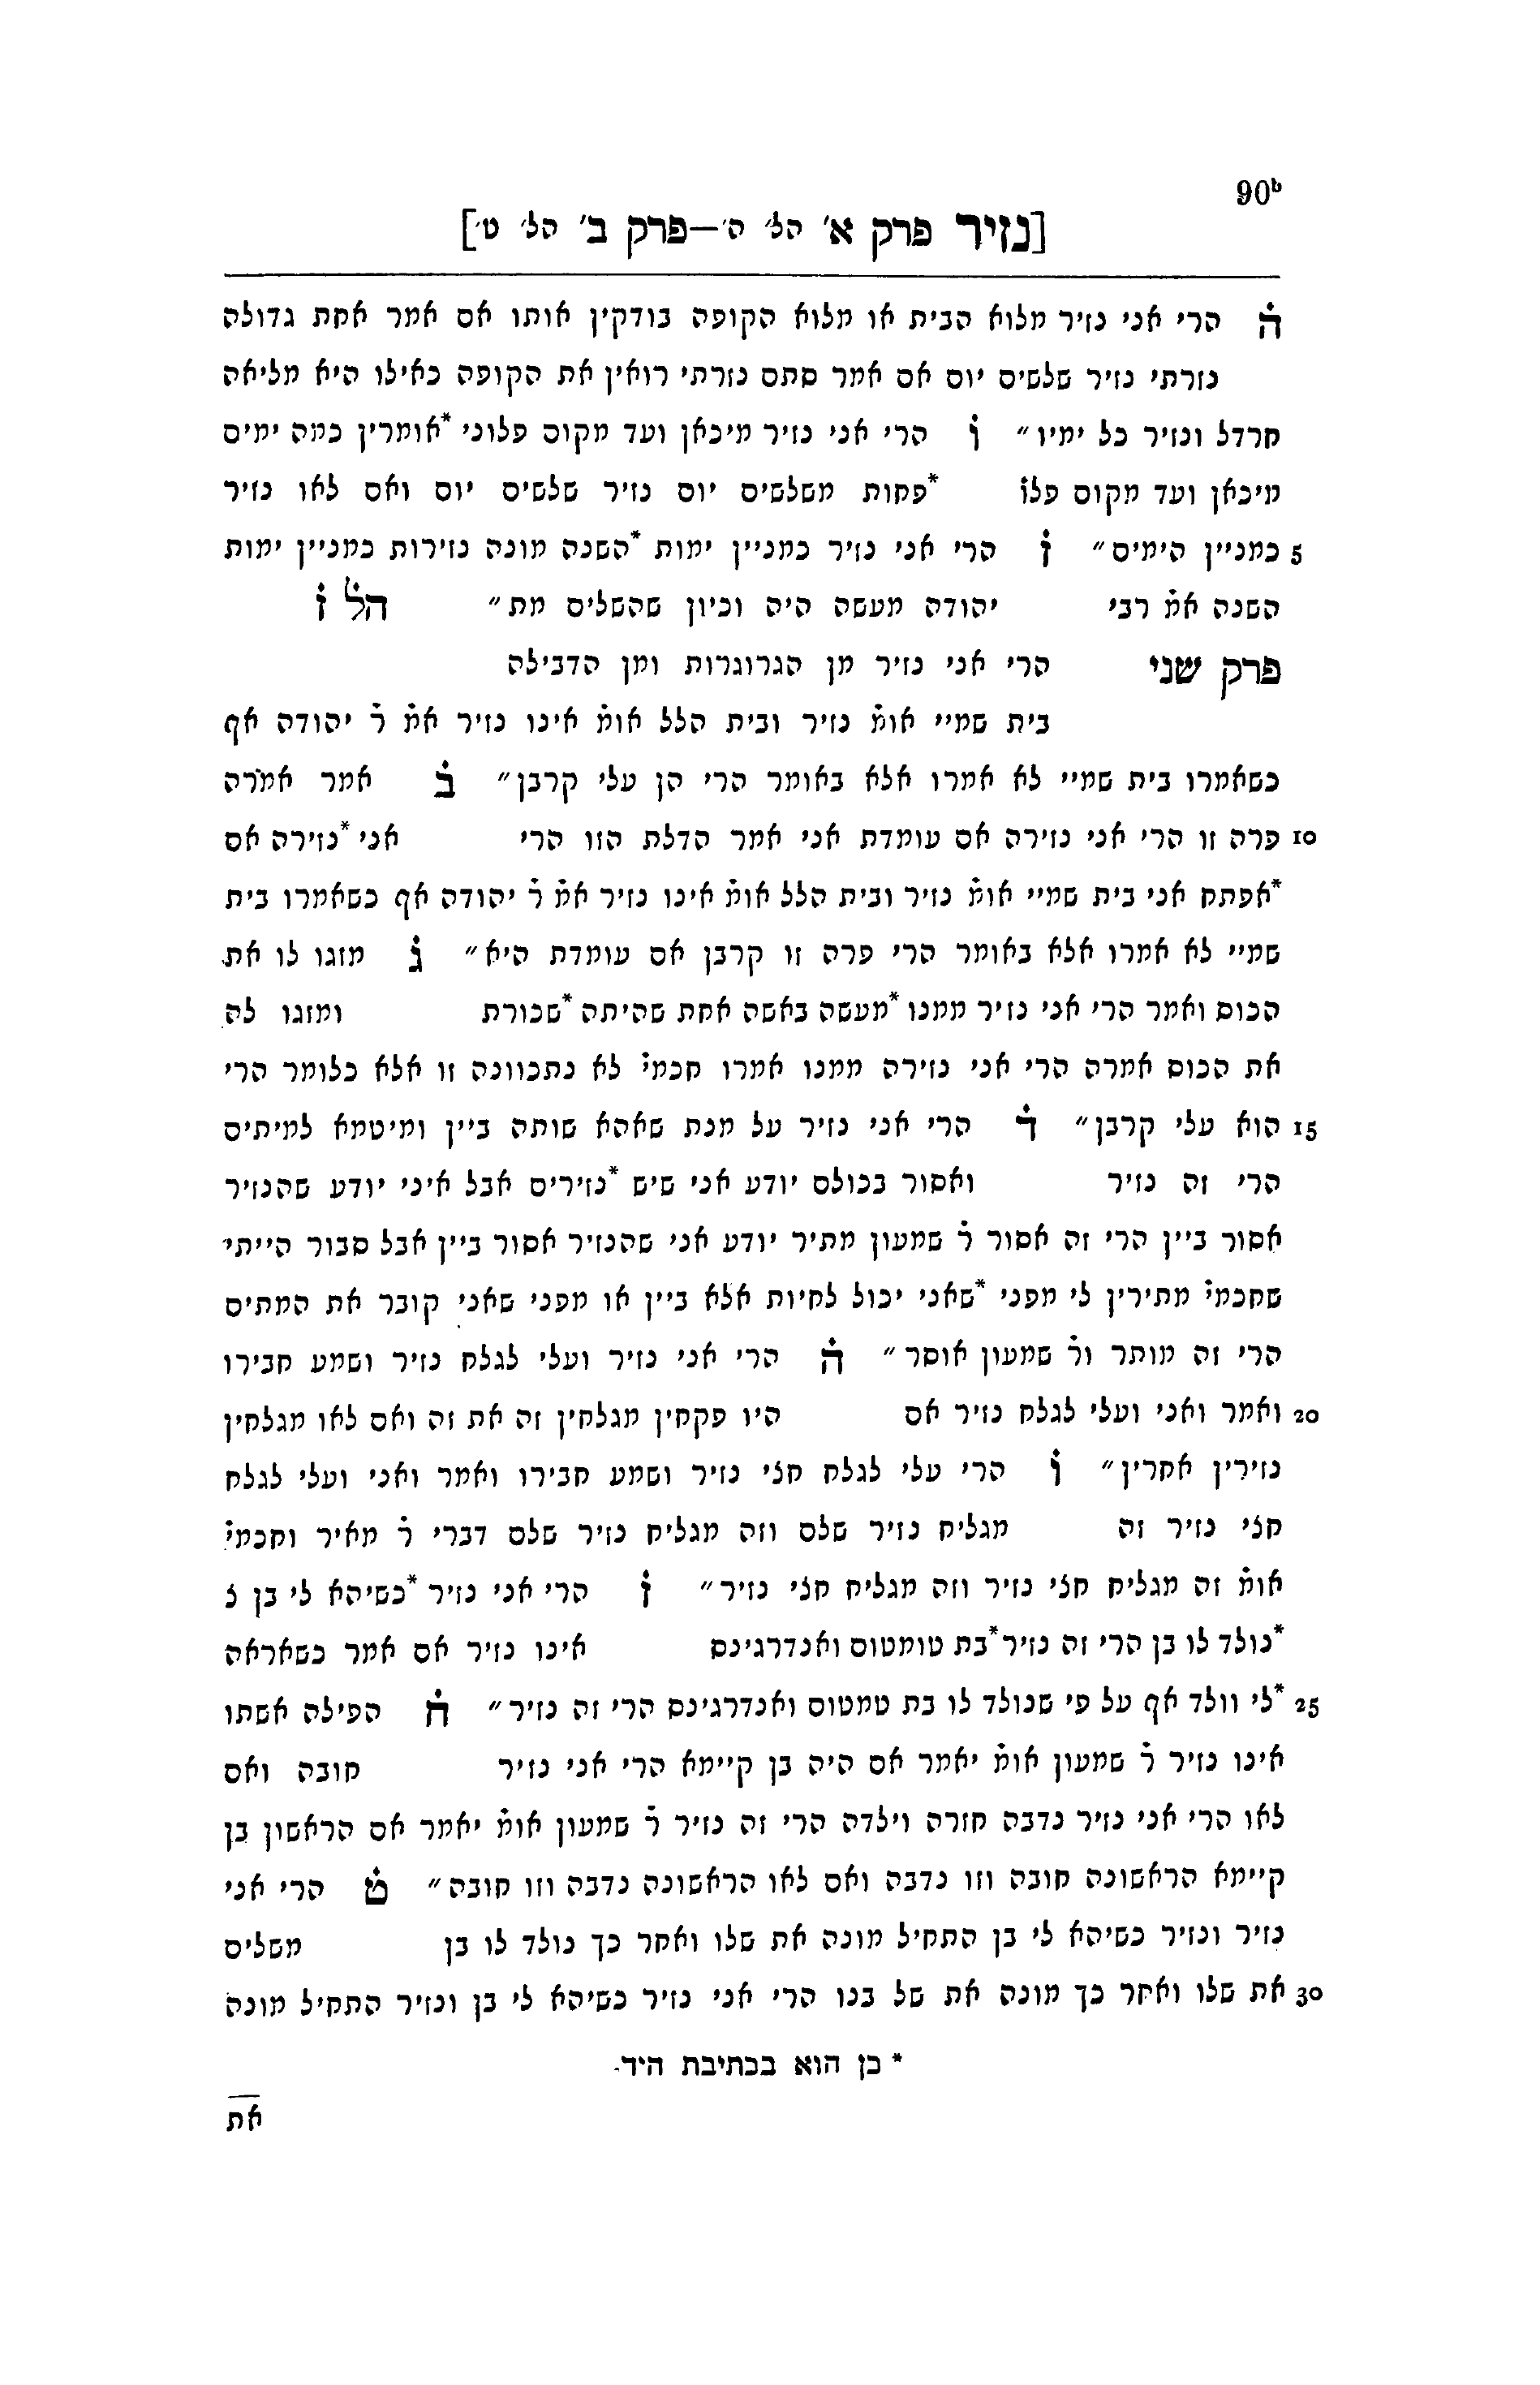 90b
[נזיר פרק א' הל' ה'—פרק ב' הל' ט']
הׄ הרי אני נזיר מלוא הבית או מלוא הקופה בודקין אותו אם אמר אחת גדולה
נזרתי נזיר שלשים יום אם אמר סתם נזרתי רואין את הקופה כאילו היא מליאה
חרדל ונזיר כל ימיו״ וׄ הרי אני נזיר מיכאן ועד מקום פלוני *אומרין כמה ימים
מיכאן ועד מקום פלוׄ *פחות משלשים יום נזיר שלשים יום ואם לאו נזיר
5 כמניין הימים״ זׄ הרי אני נזיר כמניין ימות *השנה מונה נזירות כמניין ימות
השנה אמׄ רבי יהודה מעשה היה וכיון שהשלים מת״ הלׄ זׄ
פרק שני הרי אני נזיר מן הגרוגרות ומן הדבילה
בית שמיי אומׄ נזיר ובית הלל אומׄ אינו נזיר אמׄ רׄ יהודה אף
כשאמרו בית שמיי לא אמרו אלא באומר הרי הן עלי קרבן״ בׄ אמר אמרה
10 פרה זו הרי אני נזירה אם עומדת אני אמר הדלת הזו הרי אני *נזירה אם
*אפתח אני בית שמיי אומׄ נזיר ובית הלל אומׄ אינו נזיר אמׄ רׄ יהודה אף כשאמרו בית
שמיי לא אמרו אלא באומר הרי פרה זו קרבן אם עומדת היא״ גׄ מזגו לו את
הכוס ואמר הרי אני נזיר ממנו *מעשה באשה אחת שהיתה *שכורת ומזגו לה
את הכוס אמרה הרי אני נזירה ממנו אמרו חכמיׄ לא נתכוונה זו אלא כלומר הרי
15 הוא עלי קרבן״ דׄ הרי אני נזיר על מנת שאהא שותה ביין ומיטמא למיתים
הרי זה נזיר ואסור בכולם יודע אני שיש *נזירים אבל איני יודע שהנזיר
אסור ביין הרי זה אסור רׄ שמעון מתיר יודע אני שהנזיר אסור ביין אבל סבור הייתי
שחכמיׄ מתירין לי מפני *שאני יכול לחיות אלא ביין או מפני שאני קובר את המתים
הרי זה מותר ורׄ שמעון אוסר״ הׄ הרי אני נזיר ועלי לגלח נזיר ושמע חבירו
20 ואמר ואני ועלי לגלח נזיר אם היו פקחין מגלחין זה את זה ואם לאו מגלחין
נזירין אחרין״ וׄ הרי עלי לגלח חצי נזיר ושמע חבירו ואמר ואני ועלי לגלח
חצי נזיר זה מגליח נזיר שלם וזה מגליח נזיר שלם דברי רׄ מאיר וחכמיׄ
אומׄ זה מגליח חצי נזיר וזה מגליח חצי נזיר״ זׄ הרי אני נזיר *כשיהא לי בן נ
*נולד לו בן הרי זה נזיר *בת טומטום ואנדרגינס אינו נזיר אם אמר כשאראה
25 *לי וולד אף על פי שנולד לו בת טמטום ואנדרגינס הרי זה נזיר״ חׄ הפילה אשתו
אינו נזיר רׄ שמעון אומׄ יאמר אם היה בן קיימא הרי אני נזיר חובה ואם
לאו הרי אני נזיר נדבה חזרה וילדה הרי זה נזיר רׄ שמעון אומׄ יאמר אם הראשון בן
קיימא הראשונה חובה וזו נדבה ואם לאו הראשונה נדבה וזו חובה״ טׄ הרי אני
נזיר ונזיר כשיהא לי בן התחיל מונה את שלו ואחר כך נולד לו בן משלים
30 את שלו ואחר כך מונה את של בנו הרי אני נזיר כשיהא לי בן ונזיר התחיל מונה
* כן הוא בכתיבת היד.
את